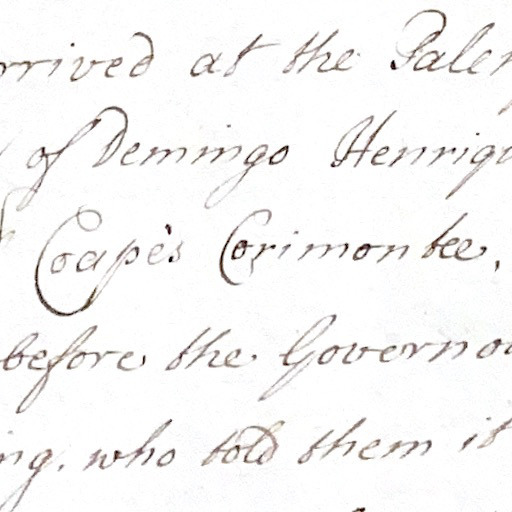 rrived at the Paler
of Demingo Henriqu
Coapès Corimontee,
before the Governou
ing, who told them it